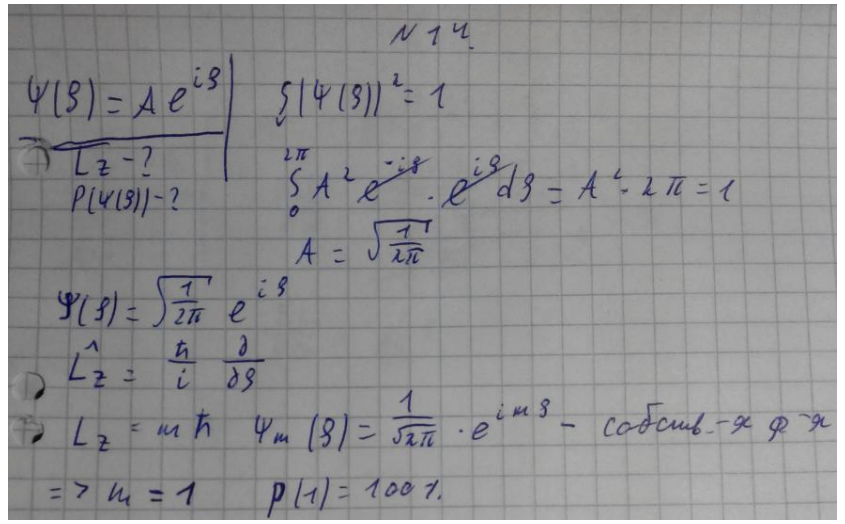 N 14.
Ψ(φ) = A e^{iφ}
L_z - ?
P(Ψ(φ)) - ?
∫|Ψ(φ)|² = 1
∫₀^{2π} A² e^{-iφ} · e^{iφ} dφ = A² · 2π = 1
A = √(1/2π)
Ψ(φ) = √(1/2π) e^{iφ}
L̂_z = ħ/i ∂/∂φ
L_z = mħ Ψ_m(φ) = 1/√2π · e^{imφ} - собств.-я ф-я
=> m = 1 P(1) = 100%.